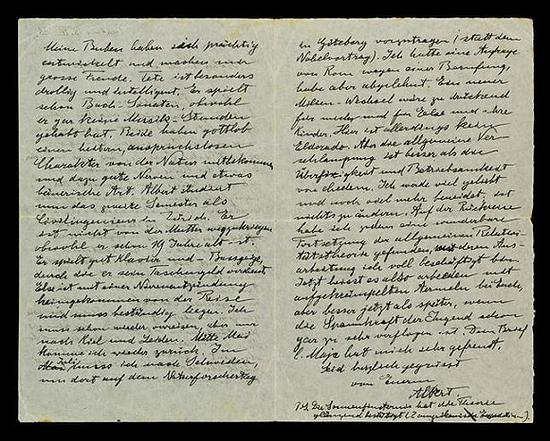 Meine Buben haben sich prächtig
entwickelt und machen mir
grosse Freude. Tete ist besonders
drollig und intelligent. Er spielt
schon Bach-Sonaten, obwohl
er gar keine Musik-Stunden
gehabt hat. Beide haben gottlob
einen heitern, anspruchslosen
Charakter von der Natur mitbekommen
und dazu gute Nerven und etwas
bäuerische Art. Albert studiert
nun das zweite Semester als
Civilingenieur in Zürich. Er
ist nicht von der Mutter wegzukriegen
obwohl er schon 19 Jahre alt ist.
Er spielt gut Klavier und Bassgeige,
durch die er sein Taschengeld verdient
Else ist mit einer Nierenentzündung
heimgekommen von der Reise
und muss beständig liegen. Ich
muss schon wieder verreisen aber nur
nach Kiel und Leiden. Mitte Mai
komme ich wieder zurück. Im
Juli muss ich nach Schweden,
um dort auf dem Naturforschertag
in Göteborg vorzutragen (statt dem
Nobelvortrag). Ich hatte eine Anfrage
von Rom wegen einer Berufung,
habe aber abgelehnt. Ein neuer
Milieu-Wechsel wäre zu drückend
für mich und für Else und ihre
Kinder. Hier ist allerdings kein
Eldorado. Aber die allgemeine Ver-
schlampung ist besser als die
und Betriebsamkeit
von ehedem. Ich werde viel geliebt
und noch viel mehr beneidet, hat
nichts zu ändern. Auf der Rückreise
habe ich eine wunderbare
Fortsetzung der allgemeinen Relativi-
tätstheorie gefunden, mit deren Aus-
arbeitung ich voll beschäftigt bin
Jetzt heisst es also arbeiten mit
aufgekrempelten Ärmeln bis Ende,
aber besser jetzt als später, wenn
die Spannkraft der Jugend schon
gar zu sehr verflogen ist. Dein Brief
hat mich sehr gefreut.
Seid herzlich gegrüsst
von Euerm
Albert.
P.S. Die Sonnenfinsternis hat die Theorie
bestätigt (2 amerikanische Expeditionen).